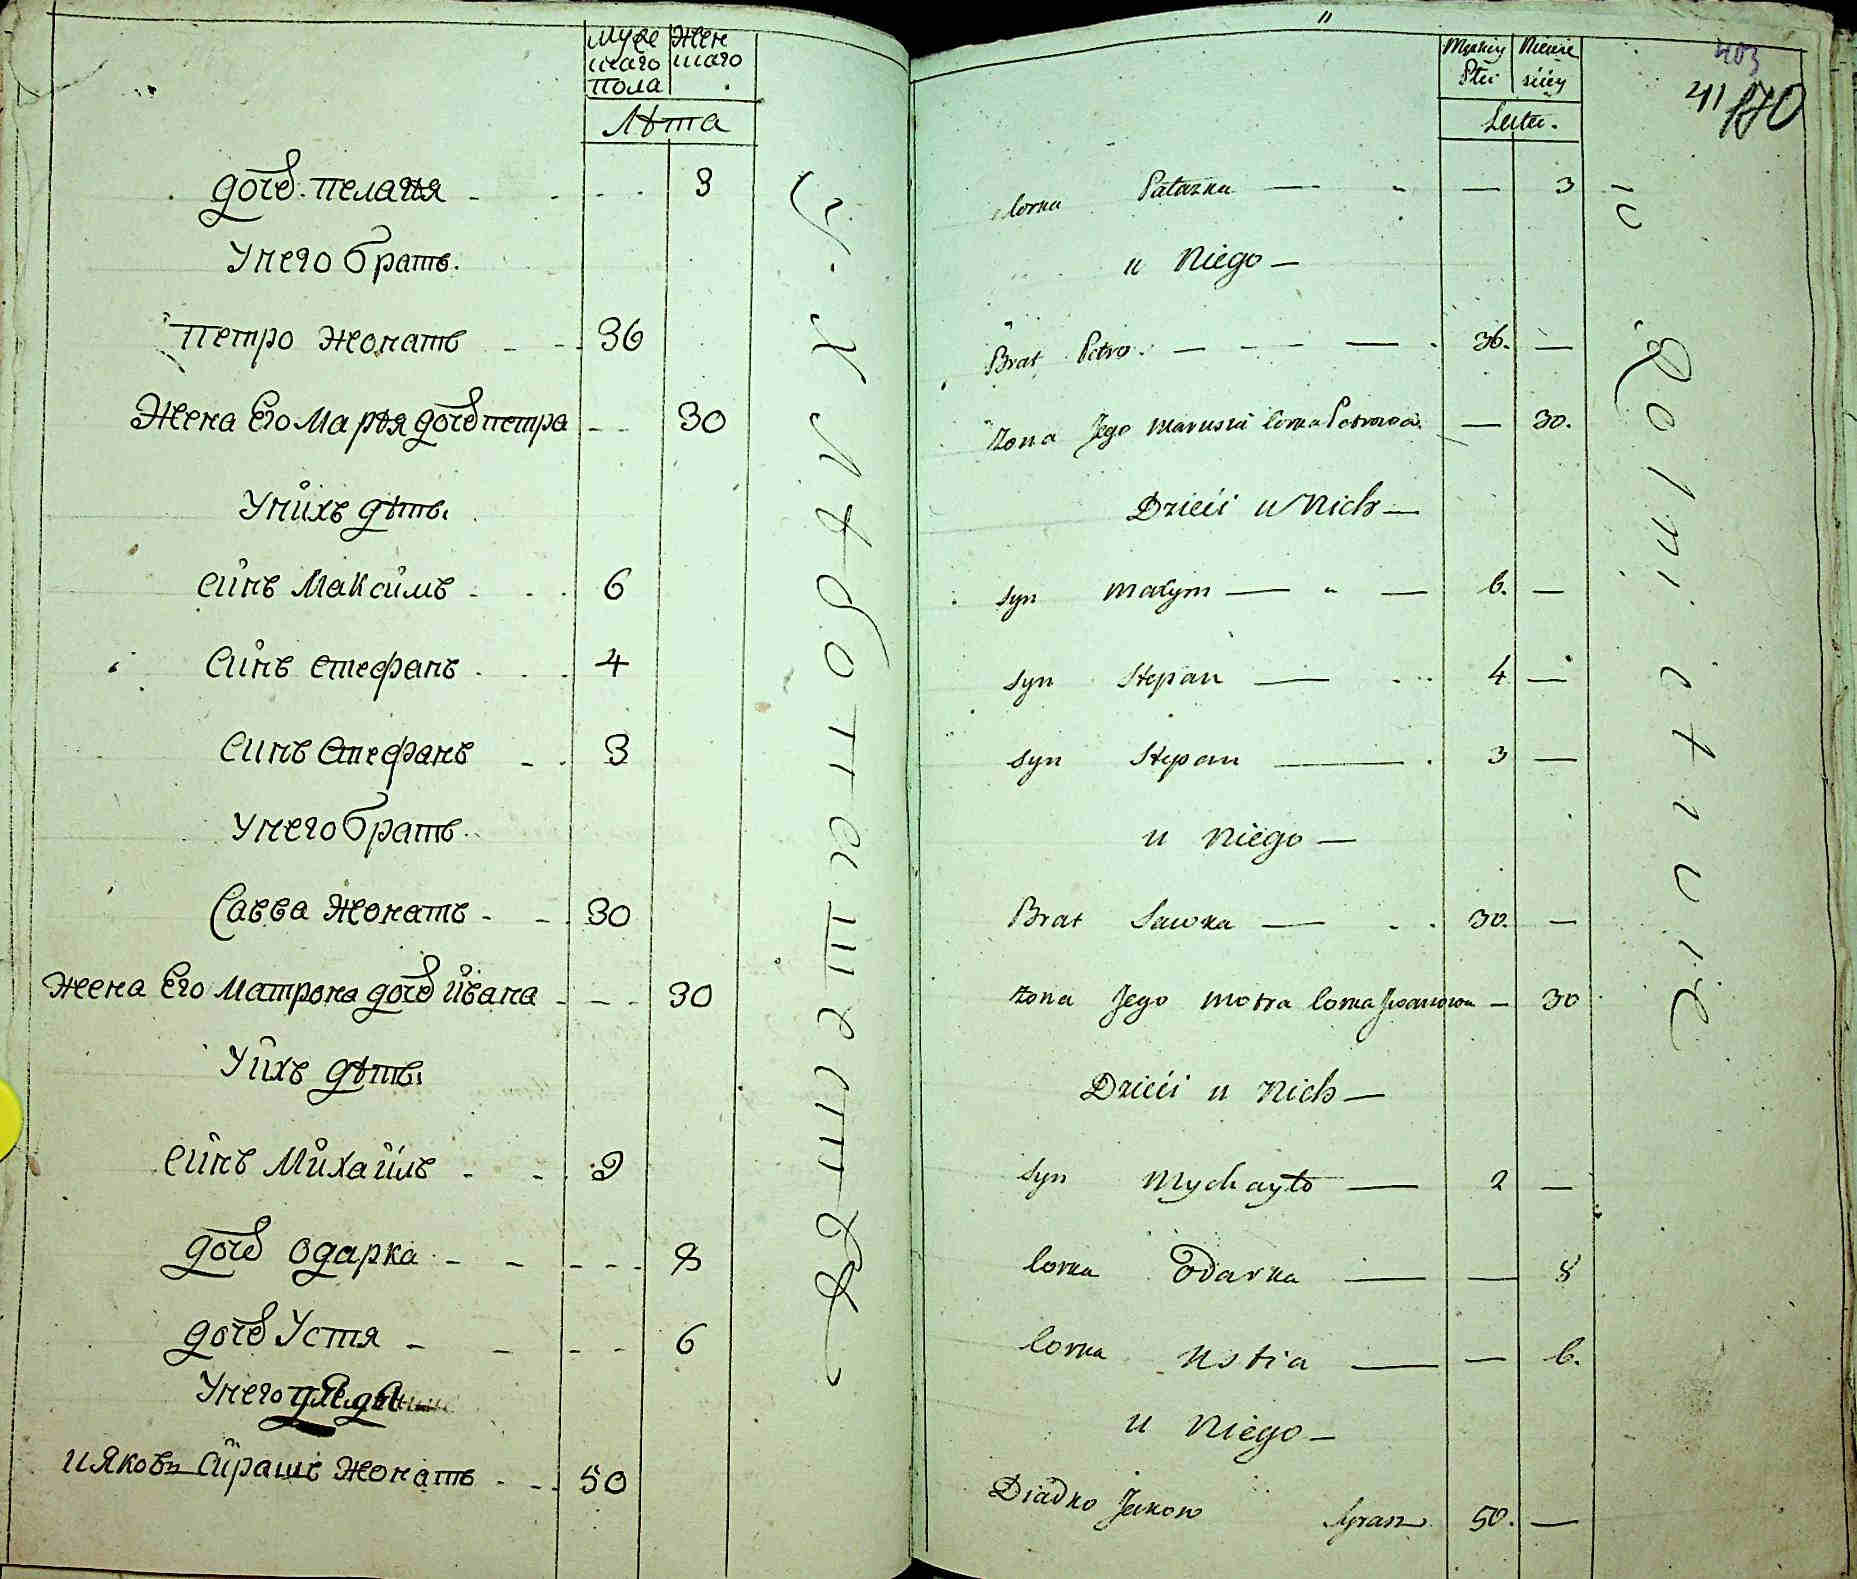 Муже Жен
скаго скаго
пола
Лѣта
дочь пелагѣя - - - 3
У него братъ.
петро жонатъ - - 36
Жена его Марѣя дочь петра - - 30
У нихъ дѣтѣ.
синъ Максимъ - - 6
Синъ стефанъ - - 4
Синъ стефанъ - - 3
У него братъ.
Савва жонатъ - - 30
жена его матрона дочь ивана - - - 30
У ихъ дѣтѣ.
синъ Михаилъ - - 2
дочь одарка - - - - - 8
дочь Устя - - - - 6
У него дядя
и яковъ Сирашъ жонатъ - - 50
У. Х лѣботпашества
"
Męskiey Niewie
Płci sciey
Leta.
403
41 170
Corka Pałazka — - — 3
u Niego —
Brat Petro. — - — — 36. —
Żona Jego Marusia Corka Petrowa. — 30.
Dzieci u Nich —
Syn Maxym — - — 6. —
Syn Stepan — - - 4 —
Syn Stepan — 3 —
u Niego —
Brat Sawka — - - 30. —
Żona Jego Motra Corka Jwanowa — 30
Dzieci u Nich —
Syn Mychayło — 2 —
Corka Odarka — — 8
Corka Ustia — — 6.
u Niego —
Diadko Jakow Syrasz 50. —
w Rolnictwie